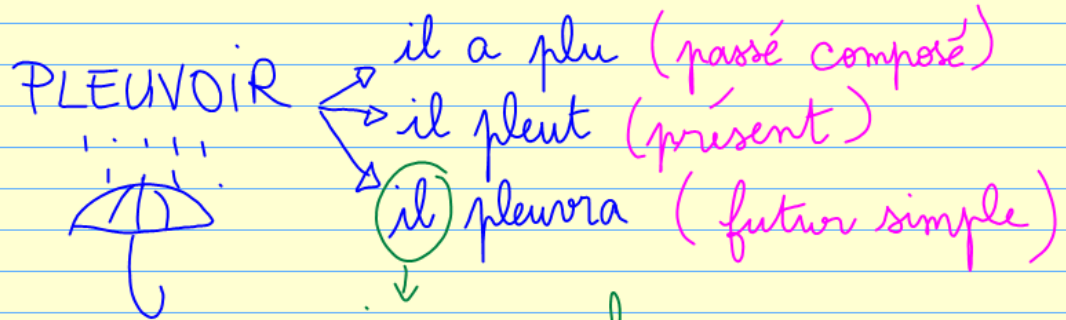 PLEUVOIR
il a plu (passé composé)
il pleut (présent)
il pleuvra (futur simple)